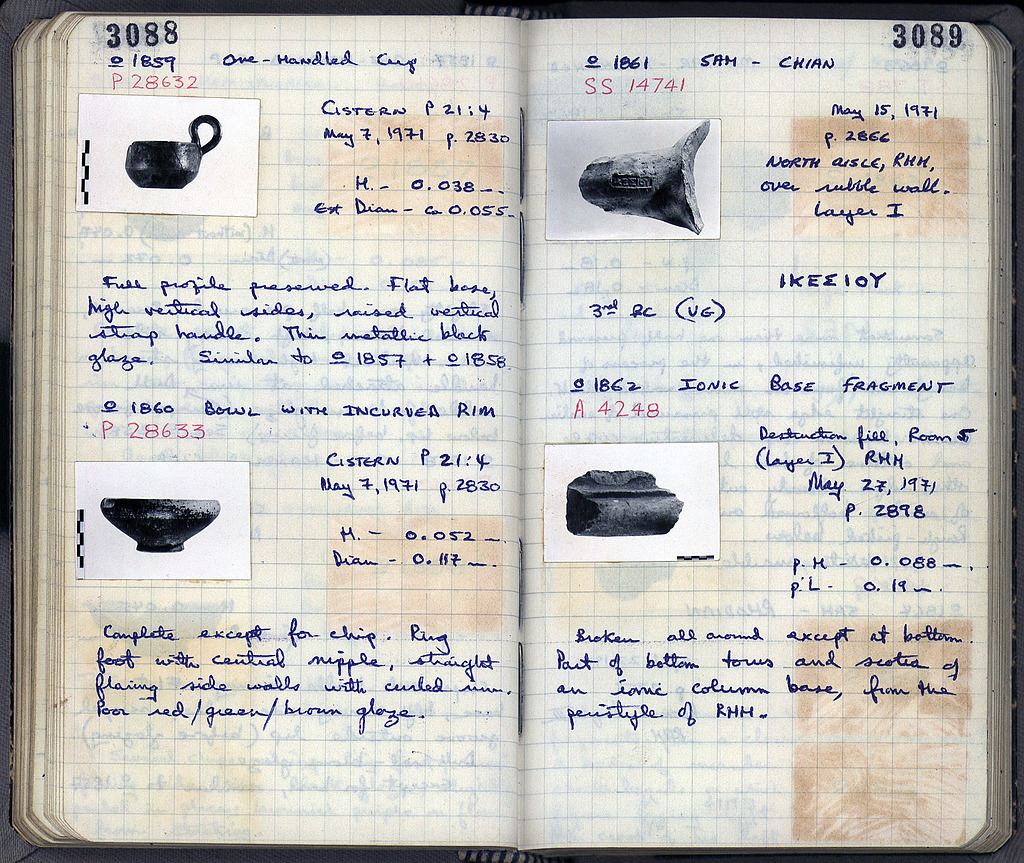 3088
Ω 1859 One-Handled Cup
P 28632
CISTERN P 21:4
May 7, 1971 p. 2830
H. - 0.038 m.
Est Diam - ca 0.055 m.
Full profile preserved. Flat base,
high vertical sides, raised vertical
strap handle. Thin metallic black
glaze. Similar to Ω 1857 + Ω 1858.
Ω 1860 BOWL WITH INCURVED RIM
P 28633
CISTERN P 21:4
May 7, 1971 p. 2830
H. - 0.052 m.
Diam - 0.117 m.
Complete except for chip. Ring
foot with central nipple, straight
flaring side walls with curled rim.
Poor red/green/brown glaze.
3089
Ω 1861 SAH - CHIAN
SS 14741
May 15, 1971
p. 2866
NORTH AISLE, RHH,
over rubble wall.
Layer I
ΙΚΕΣΙΟΥ
ΙΚΕΣΙΟΥ
3rd BC (VG)
Ω 1862 IONIC BASE FRAGMENT
A 4248
Destruction fill, Room 5
(layer I) RHH
May 27, 1971
p. 2898
p. H - 0.088 m.
p. L - 0.19 m.
Broken all around except at bottom.
Part of bottom torus and scotia of
an ionic column base, from the
peristyle of RHH.